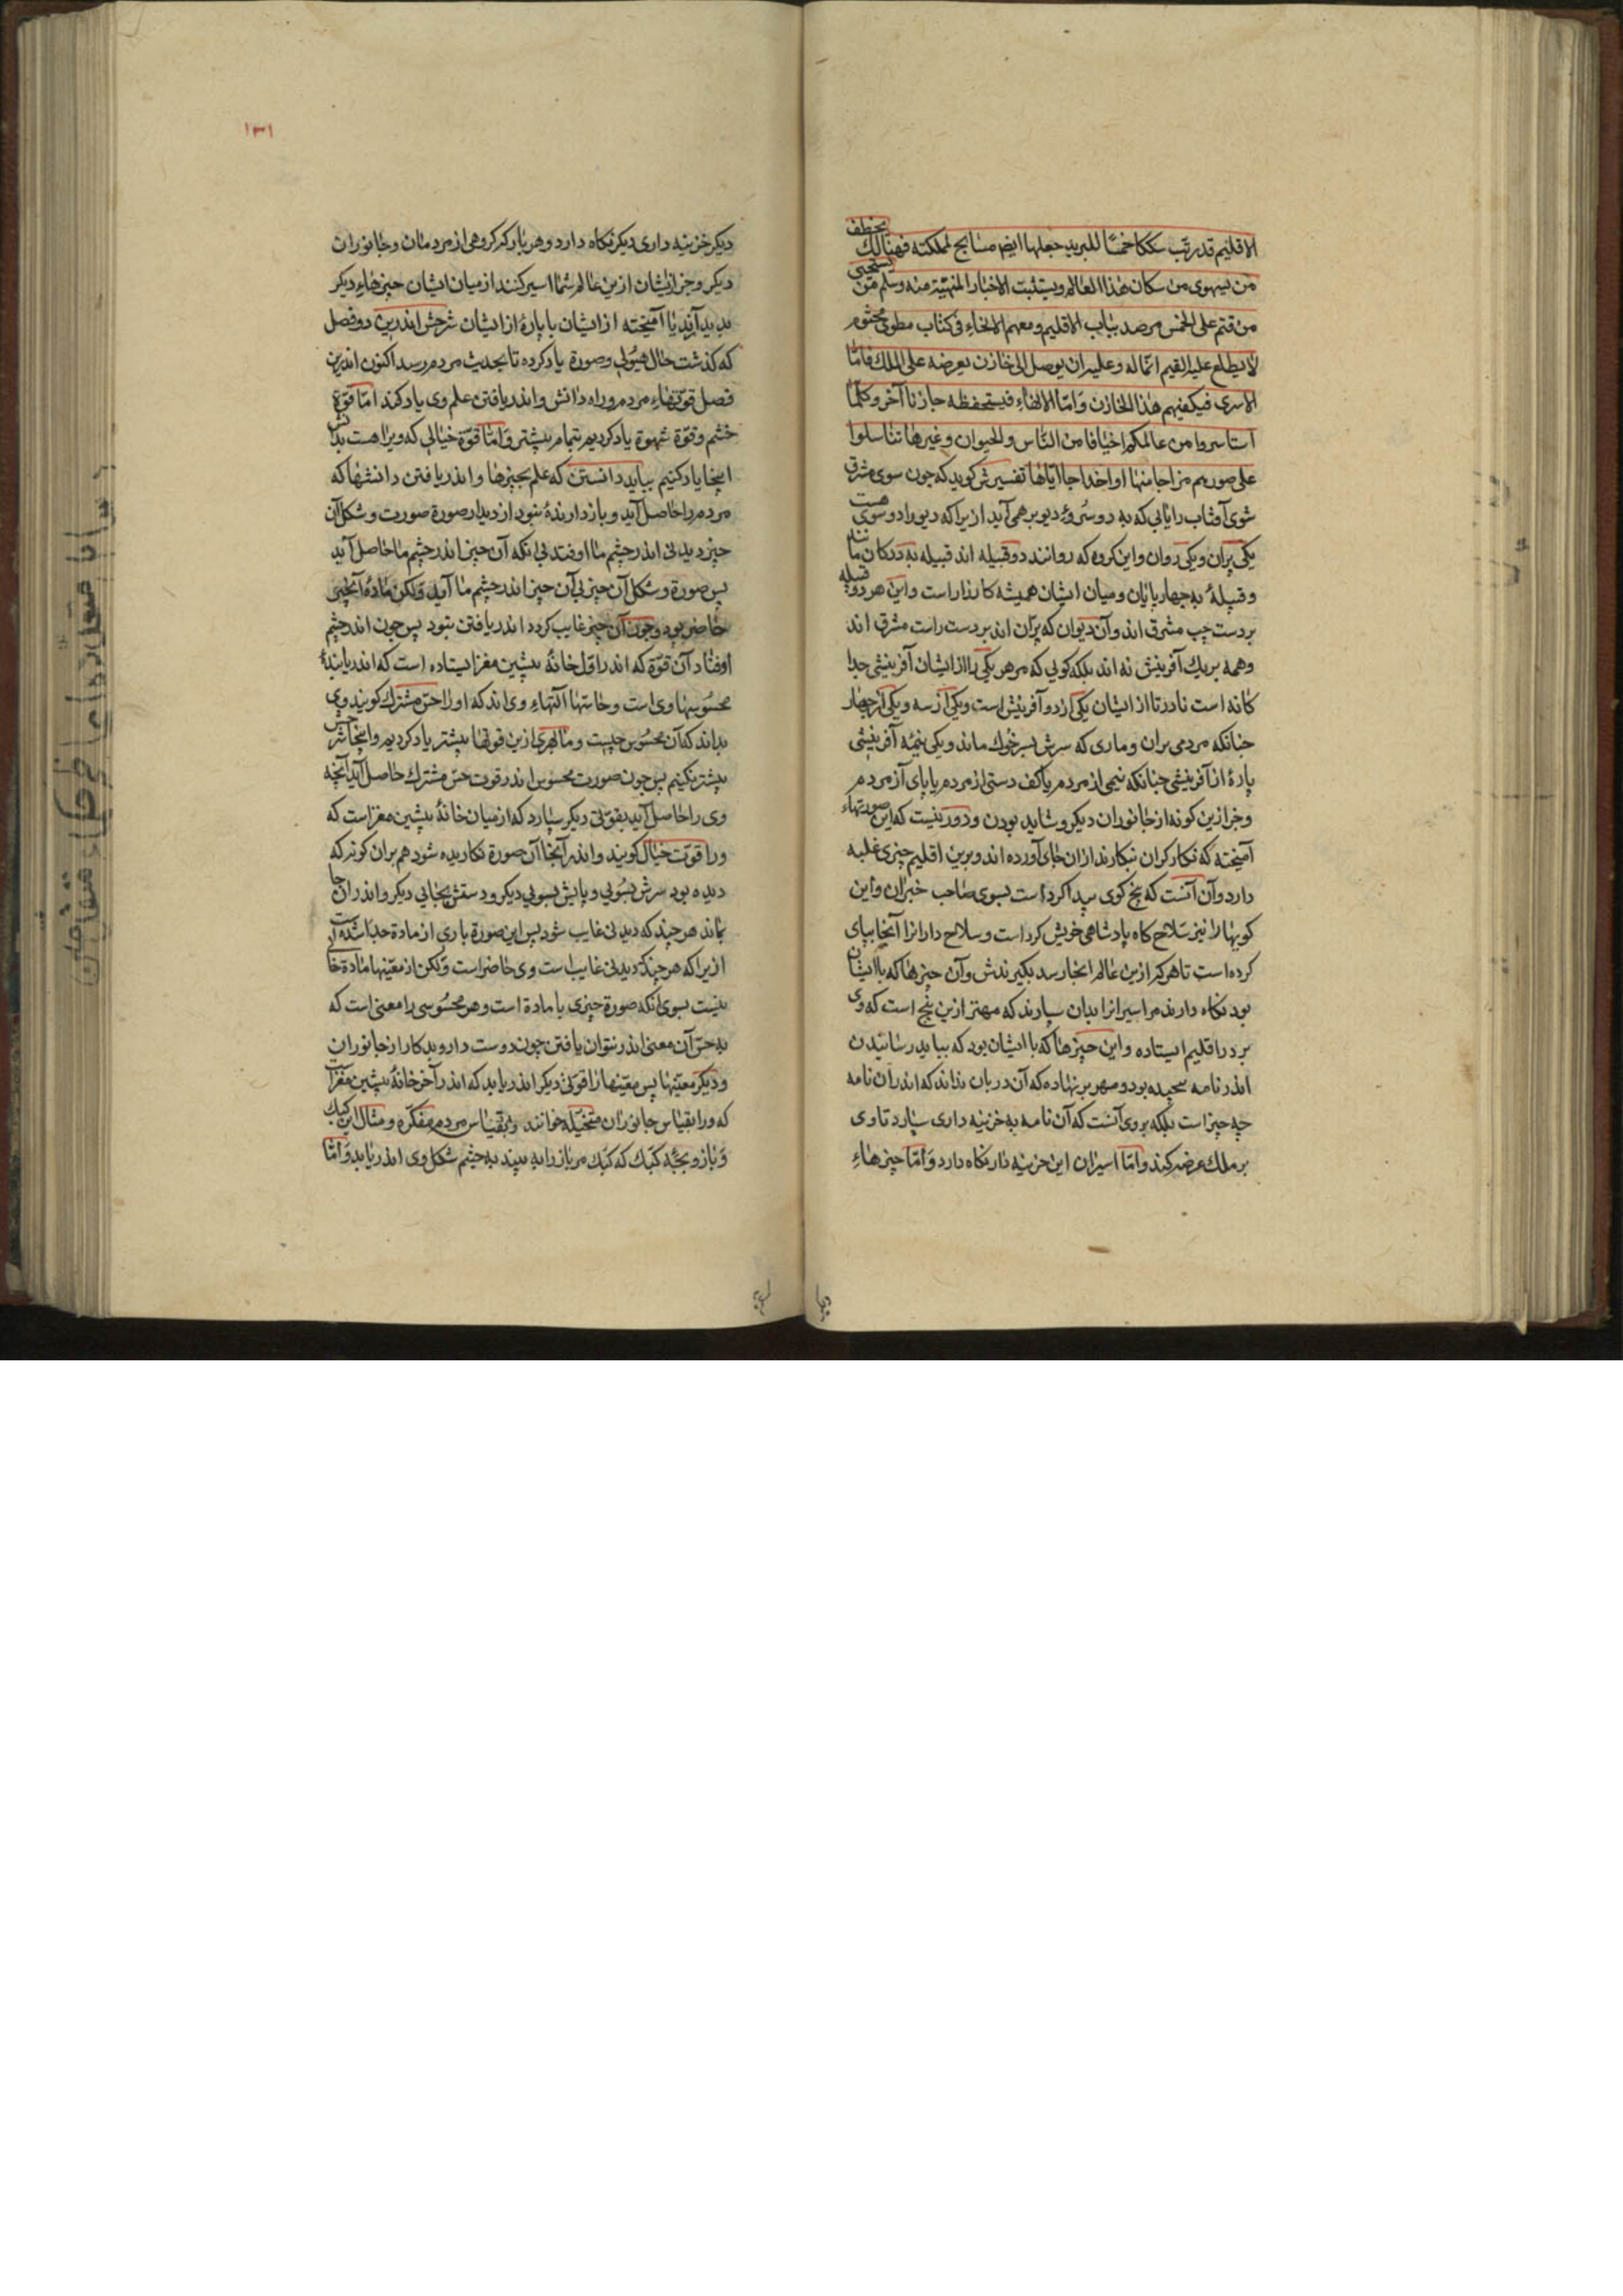 الاقلیم قد رتّب سككا خمسًا للبرید جعلها ایضا مسالح لملکته فهنالك یختطف
من یستهوی من سکان هذا العالم ویستثبت الاخبار المنتهیة منه وسلم من یستحیی
من قتم علی الخمس مرصد بباب الاقلیم ومعهم الانباء فی کتاب مطوی مختوم
لا یطلع علیه القیم انما له وعلیه ان یوصل الی خازن یعرضه علی الملك فامّا
الاسری فیکفیهم هذا الخازن وامّا الالهاء فیستحفظه خازنا آخر وکلّما
استاسروا من عالمکم اخیافا من النّاس والحیوان وغیرها تناسلوا
علی صورهم مزاجا منها او اخداجا ایّاها تفسیرش کوید که چون سوی مشرق
شوی آفتاب را یابی که به دو سُروءِ دیو بر همی آید ازیرا که دیو را دو سوی هست
یکی پران ویکی روان واین کروه که روانند دو قبیله اند قبیله به ددکان مانند
وقبیلهٔ به چهار پایان ومیان ایشان همیشه کارزار است واین هر دو قبیله
بر دست چپ مشرق اند وآن دیوان که پرّان اند بر دست راست مشرق اند
وهمه بر یك آفرینش نه اند بلکه کویی که مر هر یکی را از ایشان آفرینشی جدا
کانه است نادر تا از ایشان یکی از دو آفرینش است ویکی از سه ویکی از چهار
چنانکه مردمی پران وماری که سرش بسر خوك ماند ویکی نیمهٔ آفرینشی
پارهٔ از آفرینشی چنانکه نیمی از مردم یا کف دستی از مردم یا پای از مردم
وجز ازین کونه از جانوران دیکر وشاید بودن ودور نیست که این صورتهاء
آمیخته که نکارکران نبکارند از ان جای آورده اند وبرین اقلیم چیزی غلبه
دارد وآن آنست که پنج کوی پیدا کرد است بسوی صاحب خبران واین
کویها را نیز سلاح کاه پادشاهی خویش کرد است وسلاح داران را آنجا بپای
کرده است تا هر که ازین عالم انجا رسد بکیرندش وآن چیزها که با ایشان
بود نکاه دارند مر اسیرانرا بدان سپارند که مهتر ازین پنج است که وی
بر در اقلیم ایستاده واین چیزها که با ایشان بود که بباید رسانیدن
اندر نامه پیچیده بود ومهر بر نهاده که آن دربان نداند که اندران نامه
چه چیز است بلکه بروی آنست که آن نامه به خزینه داری سپارد تا وی
بر ملك عرضه کند وامّا اسیران این خزینه دار نکاه دارد وامّا چیزهاءِ
۱۳۱
دیکر خزینه داری دیکر نکاه دارد وهر بار که کروهی از مردمان وجانوران
دیکر وجز ازیشان ازین عالم شما اسیر کنند از میان ایشان چیزهاءِ دیکر
پدید آرند یا آمیخته از ایشان یا پارهٔ از ایشان شرحش اندرین دو فصل
که کذشت حال هیُولی وصورة یاد کرده تا بحدیث مردم رسد اکنون اندرین
فصل قوّتهاءِ مردم وراه دانش واندر یافتن علم وی یاد کرند امّا قوّة
خشم وقوّة شهوة یاد کردیم بتمام پیشتر وامّا قوّة خیالی که ویرا هست بدانش
اینجا یاد کنیم بباید دانستن که علم بچیزها واندر یافتن دانشها که
مردم را حاصل آید وباز دارندهٔ نبود از دیدار صورة صورت وشکل آن
چیز دیدنی اندر چشم ما اوفتد بی انکه آن چیز اندر چشم ما حاصل آید
پس صورة وشکل آن چیز بی آن چیز اندر چشم ما آید ولکن مادهٔ آنچیز
حاضر بود وچون آن چیز غایب کردد اندر یافتن نبود پس چون اندر چشم
اوفتاد آن قوّة که اندر اوّل خانهٔ پیشین مغز ایستاده است که اندر یابندهٔ
محسُوسها وی است وحاستها آلتهاءِ وی اند که او را حسّ مشترك کویند وی
بداند که آن محسُوس چیست وما لهری ازین قوتها پیشتر یاد کردیم واینجا شرحش
بیشتر بکنیم پس چون صورت محسوس اندر قوت حسّ مشترك حاصل آید آنچه
وی را حاصل آید بقوّتی دیکر سپارد که از میان خانهٔ پیشین مغز است که
ورا قوّت خیال کویند واندر آنجا آن صورة نکاریده شود هم بران کونه که
دیده بود سرش بسُویی وپایش بسویی دیکر ودستش بجایی دیکر واندران جا
بماند هر چند که دیدنی غایب شود پس این صورة باری از مادة جدا شده است
ازیرا که هر چند دیدنی غایب است وی حاضر است ولکن از معنیها مادة خالی
نیست بسوی انکه صورة چیزی با مادة است وهر محسُوسی را معنی است که
به حسّ آن معنی اندر نتوان یافتن چون دوست دار وبدکار از جانوران
ودیکر معنیها پس معنیها را قوّتی دیکر اندر یابد که اندر آخر خانهٔ پیشین مغز است
که ورا بقیاس جانوران متخیّله خوانند وبقیاس مردم مفکّره ومثال این کبك
وباز وبچّه کبك که کبك مر باز را به بیند به چشم شکل وی اندر یابد وامّا